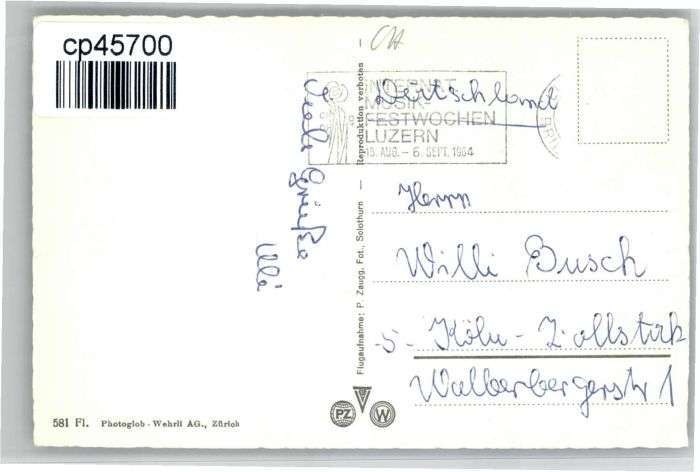 cp45700
CH
Deutschland
INTERNAT.
MUSIK-
FESTWOCHEN
LUZERN
15. AUG. - 6. SEPT. 1964
Viele Grüße
Ulli
Reproduktion verboten
Flugaufnahme: P. Zaugg, Fot., Solothurn
Herrn
Willi Busch
5 Köln - Zollstock
Walberbergerstr 1
PZ
W
581 Fl. Photoglob - Wehrli AG., Zürich